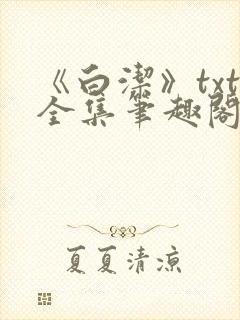 《白潔》txt
全集笔趣閣
夏夏清凉